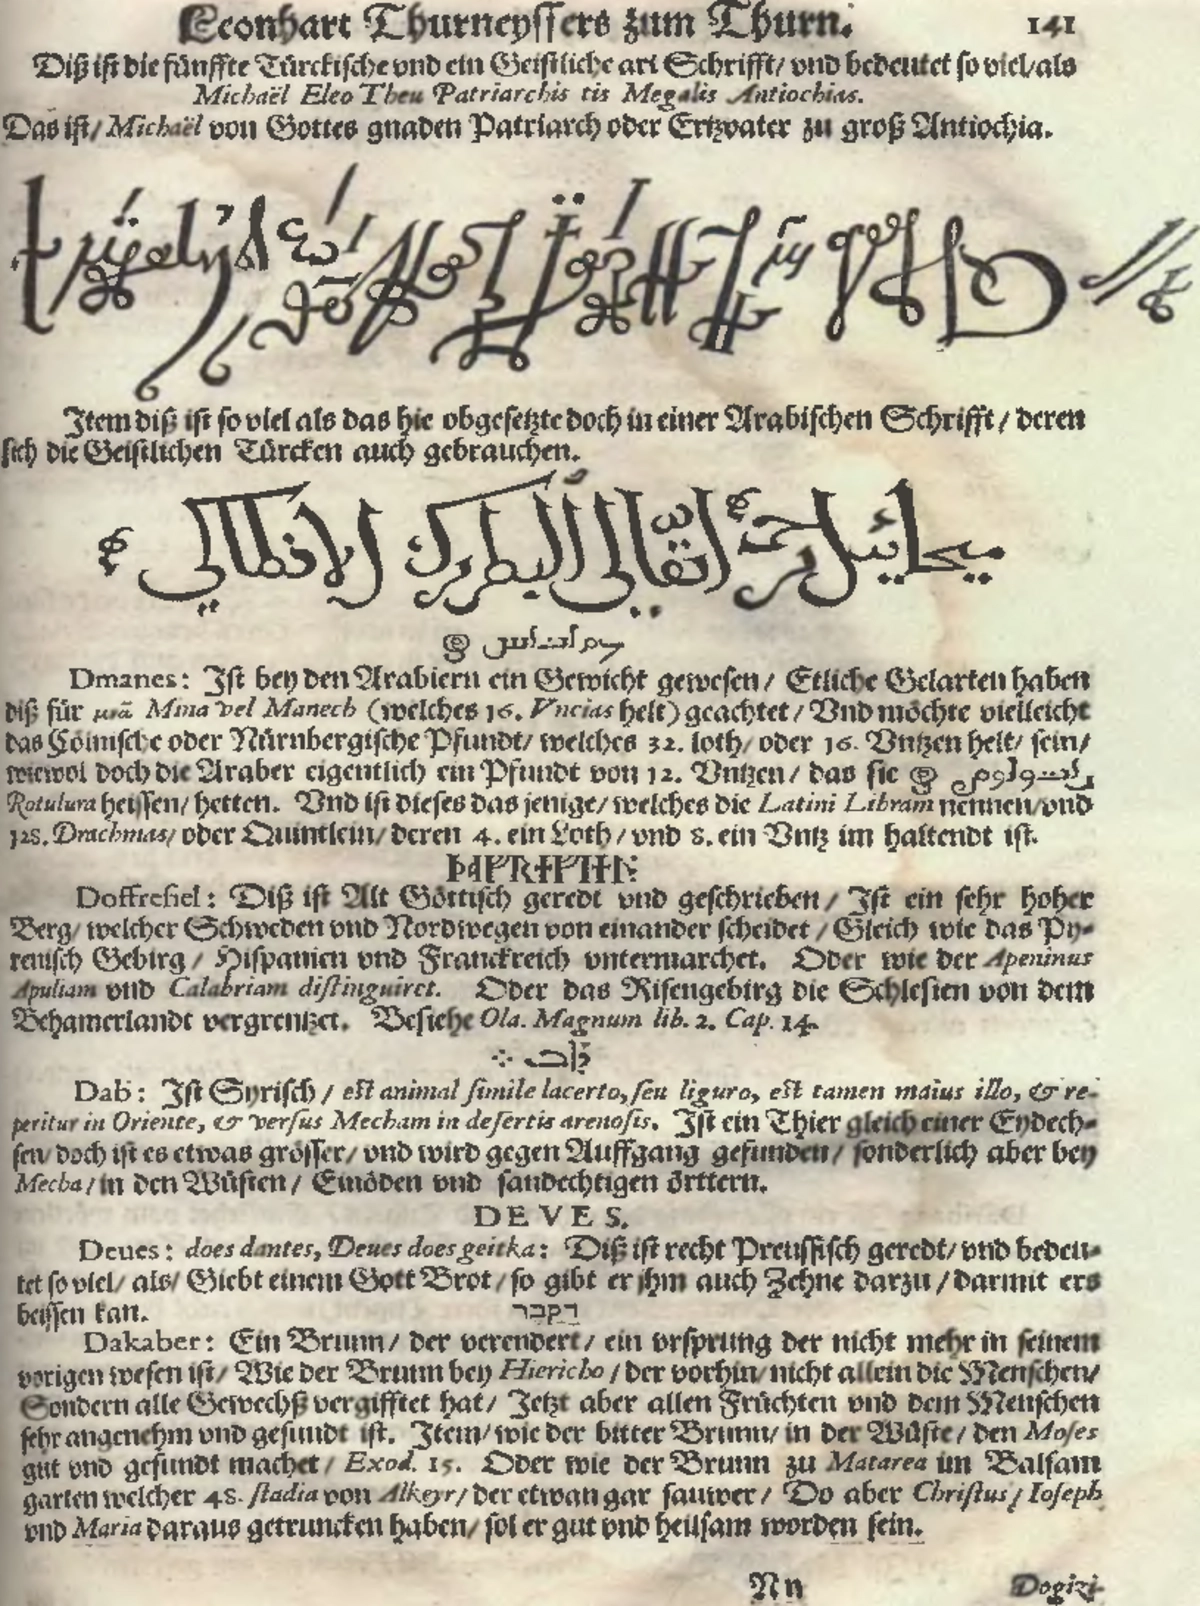 Leonhart Thurneyssers zum Thurn. 141
Diß ist die fünffte Türckische vnd ein Geistliche art Schrifft/ vnd bedeutet so viel/ als
Michaël Eleo Theu Patriarchis tis Megalis Antiochias.
Das ist/ Michaël von Gottes gnaden Patriarch oder Ertzvater zu groß Antiochia.
Item diß ist so viel als das hie obgesetzte doch in einer Arabischen Schrifft / deren
sich die Geistlichen Türcken auch gebrauchen.
ميخائيل البطريرك
Dmanes: Ist bey den Arabiern ein Gewicht gewesen / Etliche Gelarten haben
diß für Mina vel Manech (welches 16. Vncias helt) geachtet / Vnd möchte vielleicht
das Cölnische oder Nürnbergische Pfundt/ welches 32. loth/ oder 16. Vntzen helt/ sein/
wiewol doch die Araber eigentlich ein Pfundt von 12. Vntzen / das sie
Rotulura heissen/ hetten. Vnd ist dieses das jenige/ welches die Latini Libram nennen/ vnd
128. Drachmas/ oder Quintlein/ deren 4. ein Loth / vnd 8. ein Vntz im haltendt ist.
Doffrefiel: Diß ist Alt Göttisch geredt vnd geschrieben / Ist ein sehr hoher
Berg/ welcher Schweden vnd Nordwegen von einander scheidet / Gleich wie das Py-
renisch Gebirg / Hispanien vnd Franckreich vntermarchet. Oder wie der Apeninus
Apuliam vnd Calabriam distinguiret. Oder das Risengebirg die Schlesien von dem
Behamerlandt vergrentzet. Besiehe Ola. Magnum lib. 2. Cap. 14.
Dab: Ist Syrisch / est animal simile lacerto, seu liguro, est tamen maius illo, & re-
peritur in Oriente, & versus Mecham in desertis arenosis. Ist ein Thier gleich einer Eydech-
sen/ doch ist es etwas grösser/ vnd wird gegen Auffgang gefunden / sonderlich aber bey
Mecha / in den Wüsten / Einöden vnd sandechtigen örttern.
DEVES.
Deues: does dantes, Deues does geitka: Diß ist recht Preussisch geredt/ vnd bedeu-
tet so viel/ als/ Giebt einem Gott Brot / so gibt er jhm auch Zehne darzu / darmit ers
beissen kan.
דקבר
Dakaber: Ein Brunn/ der verendert / ein vrsprung der nicht mehr in seinem
vorigen wesen ist/ Wie der Brunn bey Hiericho / der vorhin/ nicht allein die Menschen/
Sondern alle Gewechß vergifftet hat/ Jetzt aber allen Früchten vnd dem Menschen
sehr angenehm vnd gesundt ist. Item/ wie der bitter Brunn/ in der Wüste / den Moses
gut vnd gesundt machet / Exod. 15. Oder wie der Brunn zu Matarea im Balsam
garten welcher 48. stadia von Alkeyr/ der etwan gar sauwer / Do aber Christus/ Ioseph
vnd Maria daraus getruncken haben/ sol er gut vnd heilsam worden sein.
Nn Dogizi-